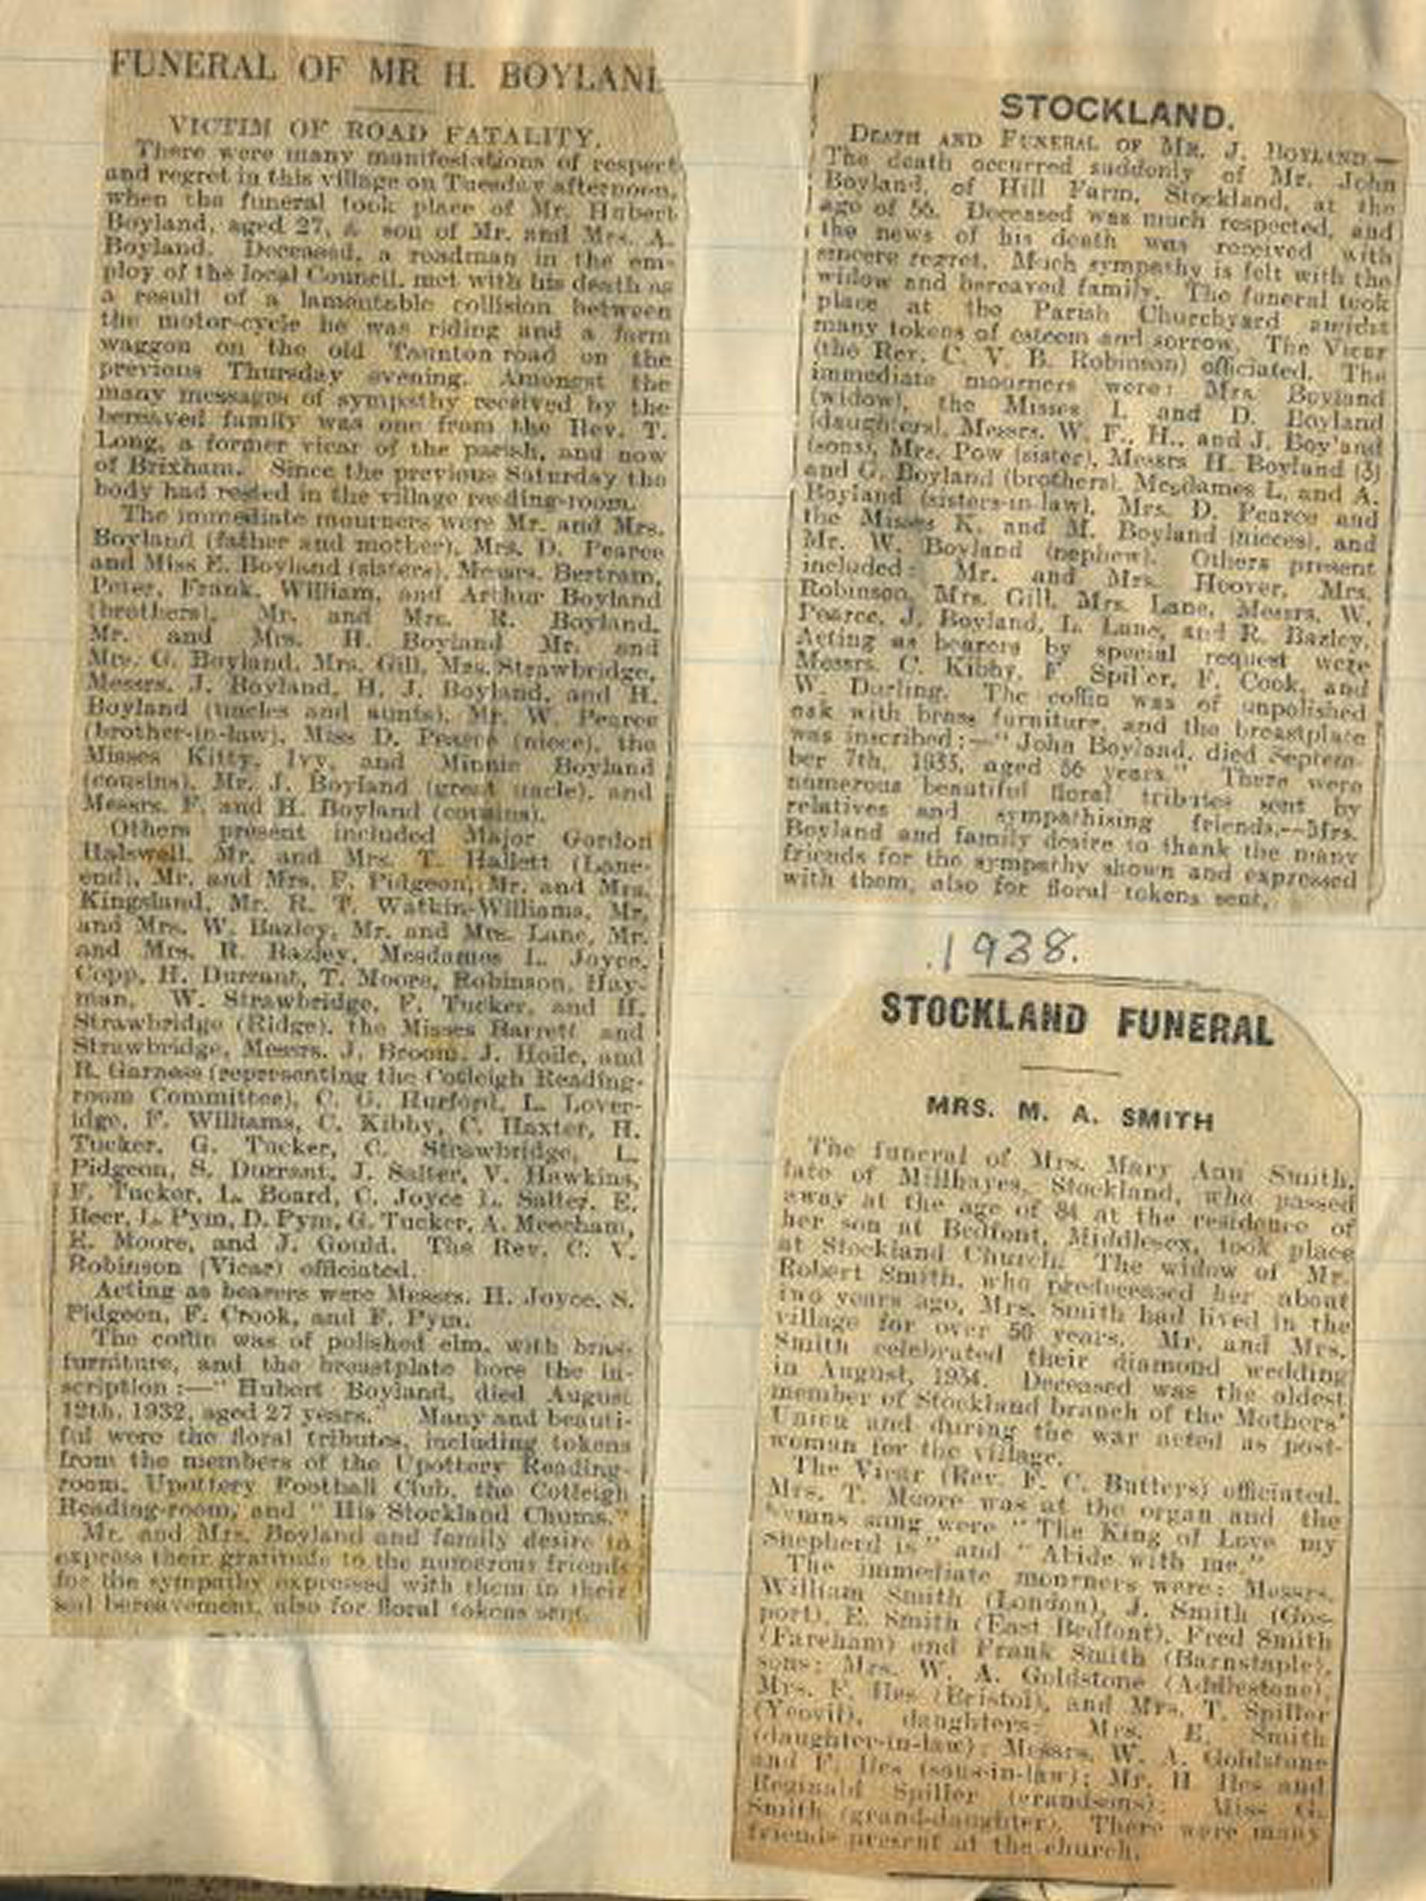 FUNERAL OF MR H. BOYLAND
VICTIM OF ROAD FATALITY.
There were many manifestations of respect
and regret in this village on Tuesday afternoon,
when the funeral took place of Mr. Hubert
Boyland, aged 27, a son of Mr. and Mrs. A.
Boyland. Deceased, a roadman in the em-
ploy of the local Council, met with his death as
a result of a lamentable collision between
the motor-cycle he was riding and a farm
waggon on the old Taunton road on the
previous Thursday evening. Amongst the
many messages of sympathy received by the
bereaved family was one from the Rev. T.
Long, a former vicar of the parish, and now
of Brixham. Since the previous Saturday the
body had rested in the village reading-room.
The immediate mourners were Mr. and Mrs.
Boyland (father and mother), Mrs. D. Pearce
and Miss E. Boyland (sisters), Messrs. Bertram,
Peter, Frank, William, and Arthur Boyland
(brothers), Mr. and Mrs. R. Boyland,
Mr. and Mrs. H. Boyland Mr. and
Mrs. G. Boyland, Mrs. Gill, Mrs. Strawbridge,
Messrs. J. Boyland, H. J. Boyland, and H.
Boyland (uncles and aunts), Mr. W. Pearce
(brother-in-law), Miss D. Pearce (niece), the
Misses Kitty, Ivy, and Minnie Boyland
(cousins), Mr. J. Boyland (great uncle), and
Messrs. F. and H. Boyland (cousins).
Others present included Major Gordon
Halswell, Mr. and Mrs. T. Hallett (Lane-
end), Mr. and Mrs. F. Pidgeon, Mr. and Mrs.
Kingsland, Mr. R. T. Watkin-Williams, Mr.
and Mrs. W. Bazley, Mr. and Mrs. Lane, Mr.
and Mrs. R. Bazley, Mesdames L. Joyce,
Copp, H. Durrant, T. Moore, Robinson, Hay-
man, W. Strawbridge, F. Tucker, and H.
Strawbridge (Ridge), the Misses Barrett and
Strawbridge, Messrs. J. Broom, J. Hoile, and
R. Garness (representing the Cotleigh Reading-
room Committee), C. G. Hurford, L. Lover-
idge, F. Williams, C. Kibby, C. Haxter, H.
Tucker, G. Tucker, C. Strawbridge, L.
Pidgeon, S. Durrant, J. Salter, V. Hawkins,
F. Tucker, L. Board, C. Joyce L. Salter, E.
Beer, L. Pym, D. Pym, G. Tucker, A. Meecham,
E. Moore, and J. Gould. The Rev. C. V.
Robinson (Vicar) officiated.
Acting as bearers were Messrs. H. Joyce, S.
Pidgeon, F. Crook, and F. Pym.
The coffin was of polished elm, with brass
furniture, and the breastplate bore the in-
scription :—" Hubert Boyland, died August
12th, 1932, aged 27 years." Many and beauti-
ful were the floral tributes, including tokens
from the members of the Upottery Reading-
room, Upottery Football Club, the Cotleigh
Reading-room, and " His Stockland Chums."
Mr. and Mrs. Boyland and family desire to
express their gratitude to the numerous friends
for the sympathy expressed with them in their
sad bereavement, also for floral tokens sent.
STOCKLAND.
DEATH AND FUNERAL OF MR. J. BOYLAND.—
The death occurred suddenly of Mr. John
Boyland, of Hill Farm, Stockland, at the
age of 56. Deceased was much respected, and
the news of his death was received with
sincere regret. Much sympathy is felt with the
widow and bereaved family. The funeral took
place at the Parish Churchyard amidst
many tokens of esteem and sorrow. The Vicar
(the Rev. C. V. B. Robinson) officiated. The
immediate mourners were: Mrs. Boyland
(widow), the Misses I. and D. Boyland
(daughters), Messrs. W. F., H., and J. Boyland
(sons), Mrs. Pow (sister), Messrs H. Boyland (3)
and G. Boyland (brothers), Mesdames L. and A.
Boyland (sisters-in-law), Mrs. D. Pearce and
the Misses K. and M. Boyland (nieces), and
Mr. W. Boyland (nephew). Others present
included: Mr. and Mrs. Hoover, Mrs.
Robinson, Mrs. Gill, Mrs. Lane, Messrs. W.
Pearce, J. Boyland, L. Lane, and R. Bazley.
Acting as bearers by special request were
Messrs. C. Kibby, F Spiller, F. Cook, and
W. Durling. The coffin was of unpolished
oak with brass furniture, and the breastplate
was inscribed:—" John Boyland, died Septem-
ber 7th, 1933, aged 56 years." There were
numerous beautiful floral tributes sent by
relatives and sympathising friends.—Mrs.
Boyland and family desire to thank the many
friends for the sympathy shown and expressed
with them, also for floral tokens sent.
1938.
STOCKLAND FUNERAL
MRS. M. A. SMITH
The funeral of Mrs. Mary Ann Smith,
late of Millhayes, Stockland, who passed
away at the age of 84 at the residence of
her son at Bedfont, Middlesex, took place
at Stockland Church. The widow of Mr.
Robert Smith, who predeceased her about
two years ago, Mrs. Smith had lived in the
village for over 50 years. Mr. and Mrs.
Smith celebrated their diamond wedding
in August, 1934. Deceased was the oldest
member of Stockland branch of the Mothers'
Union and during the war acted as post-
woman for the village.
The Vicar (Rev. F. C. Butters) officiated.
Mrs. T. Moore was at the organ and the
hymns sung were " The King of Love my
Shepherd is " and " Abide with me."
The immediate mourners were: Messrs.
William Smith (London), J. Smith (Gos-
port), E. Smith (East Bedfont), Fred Smith
(Fareham) and Frank Smith (Barnstaple),
sons; Mrs. W. A. Goldstone (Addlestone),
Mrs. F. Iles (Bristol), and Mrs. T. Spiller
(Yeovil), daughters; Mrs. E. Smith
(daughter-in-law); Messrs. W. A. Goldstone
and F. Iles (sons-in-law); Mr. H Iles and
Reginald Spiller (grandsons); Miss G.
Smith (grand-daughter). There were many
friends present at the church.